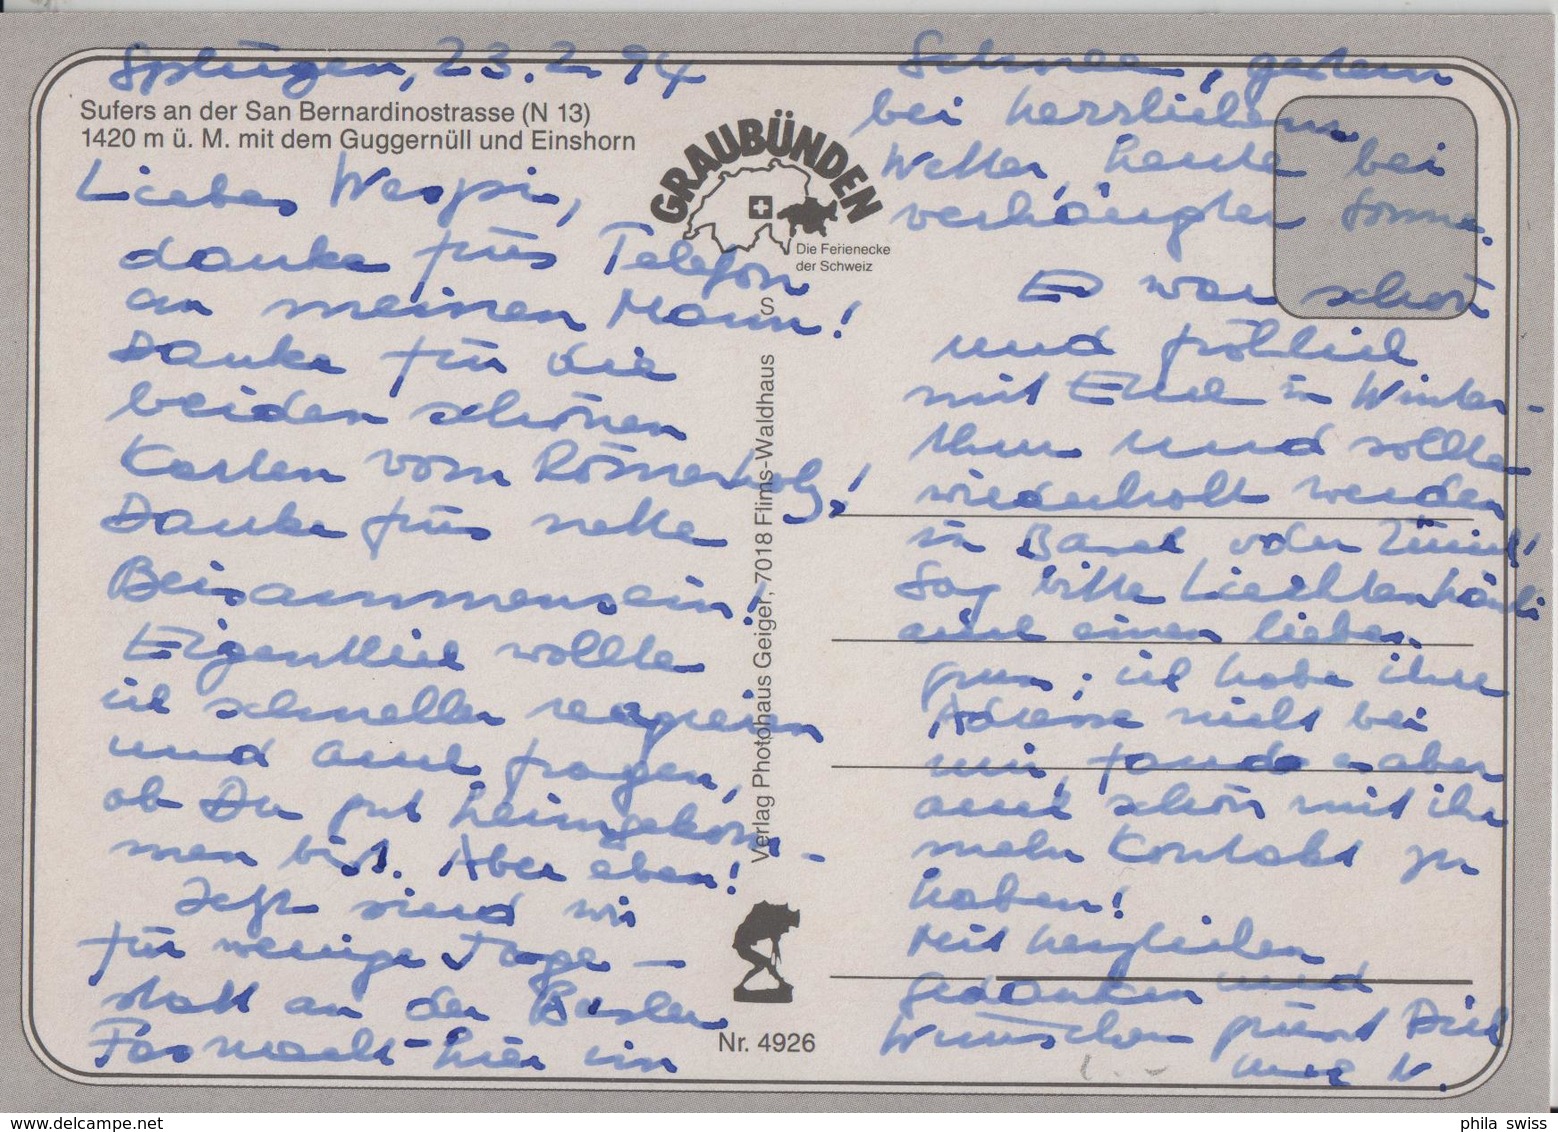 Splügen, 23.2.94
Sufers an der San Bernardinostrasse (N 13)
1420 m ü. M. mit dem Guggernüll und Einshorn
Liebes Wespi,
danke fürs Telefon
an meinen Mann!
Danke für die
beiden schönen
Karten vom Römerholz!
Danke fürs nette
Beisammensein!
Eigentlich wollte
ich schneller reagieren
und auch fragen,
ob Du gut heimgekom-
men bist. Aber eben!
Jetzt sind wir
für wenige Tage –
statt an der Basler
Fasnacht – hier im
GRAUBÜNDEN
Die Ferienecke
der Schweiz
S
Verlag Photohaus Geiger, 7018 Flims-Waldhaus
Nr. 4926
Schnee, gestern
bei herrlichem
Wetter, heute bei
verhängter Sonne.
Es war schön
und fröhlich
mit Euch in Winter-
thur und sollte
wiederholt werden
in Basel oder Zürich!
Sag bitte
auch einen lieben
Gruss; ich habe ihre
Adresse nicht bei
mir, fände es aber
auch schön mit ihr
mehr Kontakt zu
haben!
Mit herzlichen
Gedanken und
Wünschen grüsst Dich
phila swiss